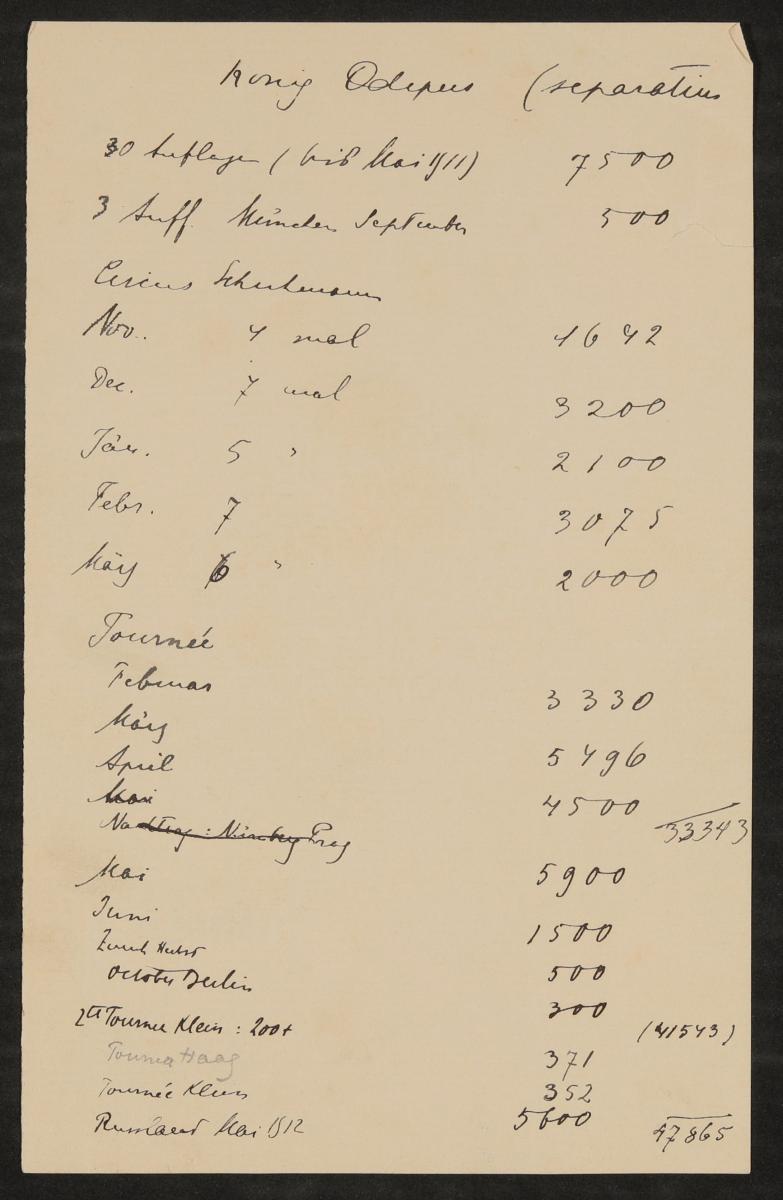 König Ödipus (separatim
30 Auflagen (bis Mai 1911) 7500
3 Aufl. München September 500
Circus Schumann
Nov. 4 mal 1642
Dec. 7 mal 3200
Jän. 5 " 2100
Febr. 7 3075
März 6 " 2000
Tournée
Februar 3330
März
April 5496
Mai 4500
Nachtrag: Nürnberg Prag 33343
Mai 5900
Juni 1500
Herbst 500
October Berlin 300
2te Tournee Klein: 200+ (41543)
Tournee Haag 371
Tournée Klein 352
Russland Mai 1912 5600 47865